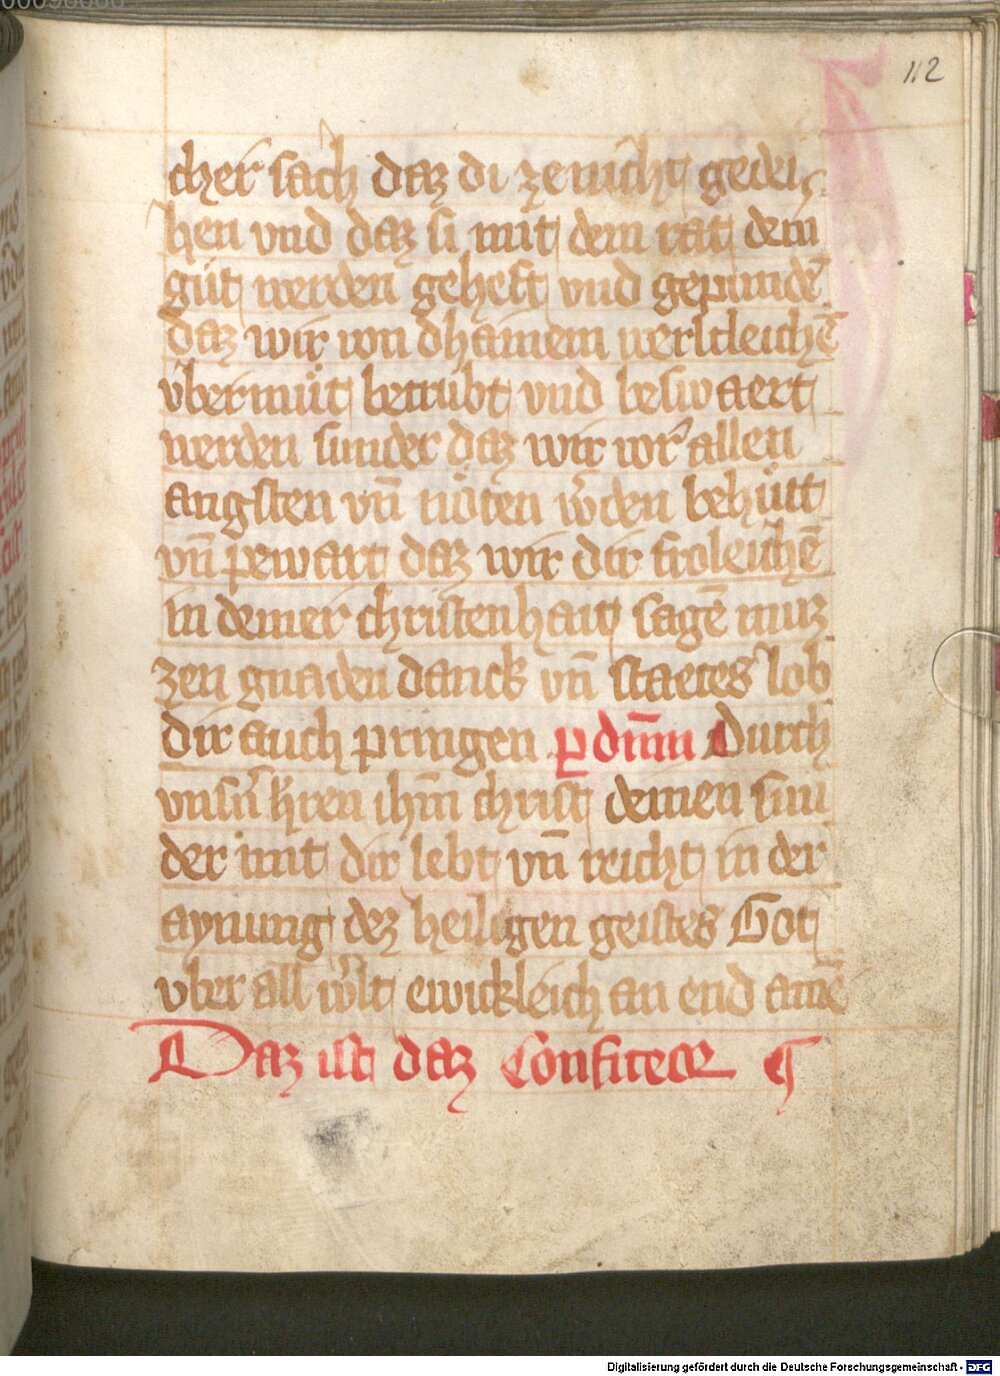 112
cher sach daz di ze nicht gedei-
hen vnd daz si mit dem rat dem
gůt werden gehest vnd gepundē
daz wir von dhainem werltleichē
vbermůt betrubt vnd beswaert
werden sunder daz wir vor allen
angsten vn̄ nöten w̄den behütt
vn̄ pewart daz wir dir froleichē
in deiner christenhait sagē muz
zen gnaden danck vn̄ staetes lob
dir auch pringen ꝑ dn̄m Durch
vnsn̄ h̄ren ihm̄ christ deinen sun
der mit dir lebt vn̄ reicht in der
aynung dez heiligen geistes Got
vber all w̄lt ewickleich an end amē
Daz ist daz Confiteor ¶
Digitalisierung gefördert durch die Deutsche Forschungsgemeinschaft - DFG